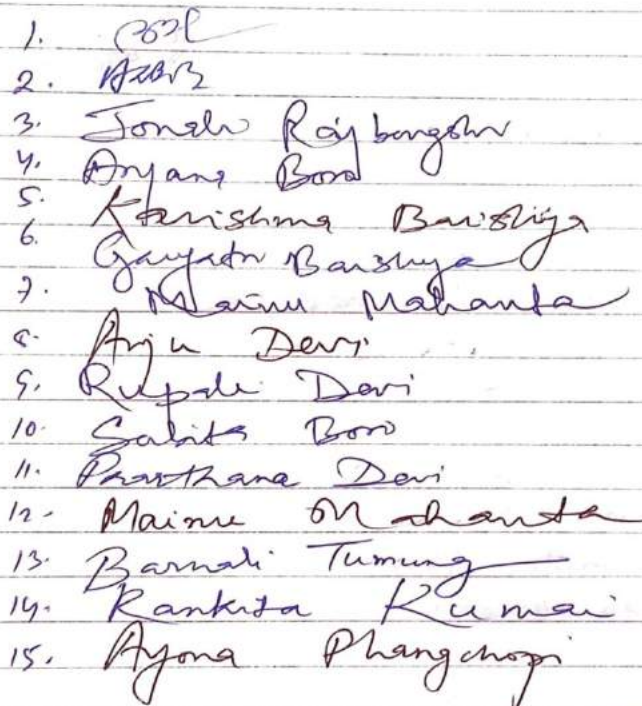 1.
2.
3. Jonali Rajbongshi
4. Anjana Boro
5. Karishma Baishya
6. Gayatri Baishya
7. Mainu Mahanta
8. Anju Devi
9. Rupali Devi
10. Sabita Boro
11. Prarthana Devi
12. Mainu Mahanta
13. Barnali Tumung
14. Rankita Kumai
15. Ayona Phangchopi